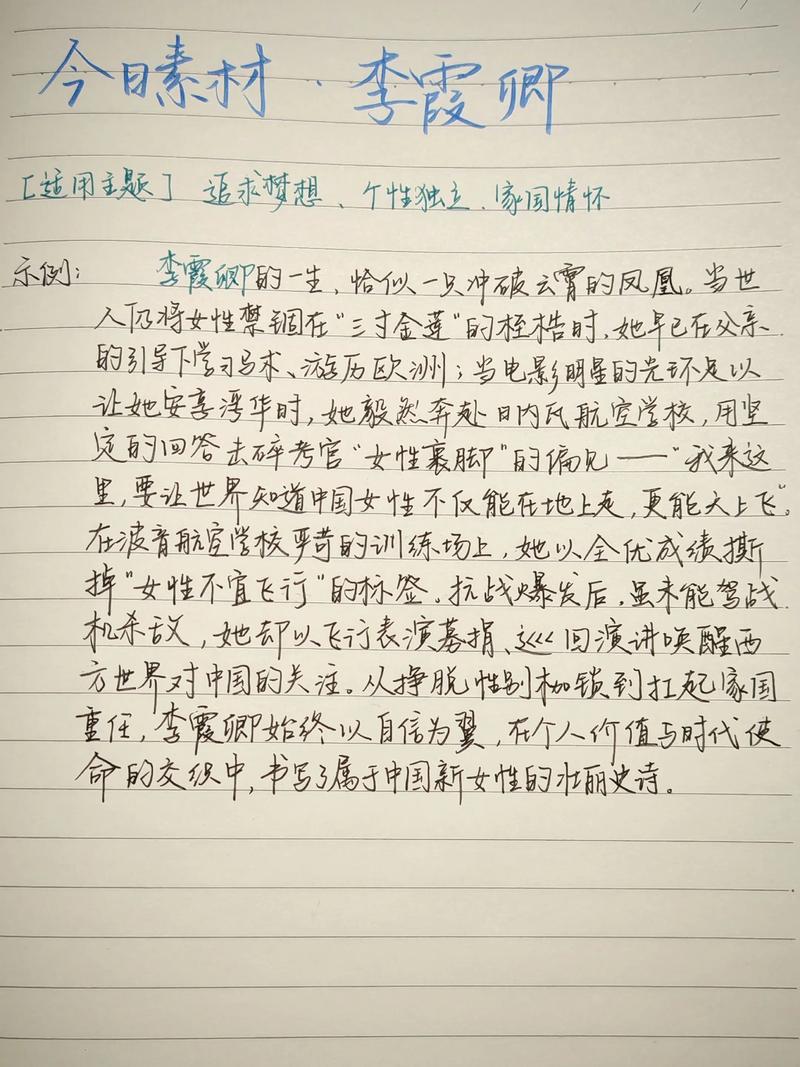 今日素材·李霞卿
[适用主题] 追求梦想、个性独立、家国情怀
示例: 李霞卿的一生,恰似一只冲破云霄的凤凰。当世
人仍将女性禁锢在“三寸金莲”的桎梏时,她早已在父亲
的引导下学习马术、游历欧洲;当电影明星的光环足以
让她安享浮华时,她毅然奔赴日内瓦航空学校,用坚
定的回答击碎考官“女性裹脚”的偏见——“我来这
里,要让世界知道中国女性不仅能在地上走,更能天上飞”。
在波音航空学校严苛的训练场上,她以全优成绩撕
掉“女性不宜飞行”的标签。抗战爆发后,虽未能驾战
机杀敌,她却以飞行表演募捐、巡回演讲唤醒西
方世界对中国的关注。从挣脱性别枷锁到扛起家国
重任,李霞卿始终以自信为翼,在个人价值与时代使
命的交织中,书写了属于中国新女性的壮丽史诗。